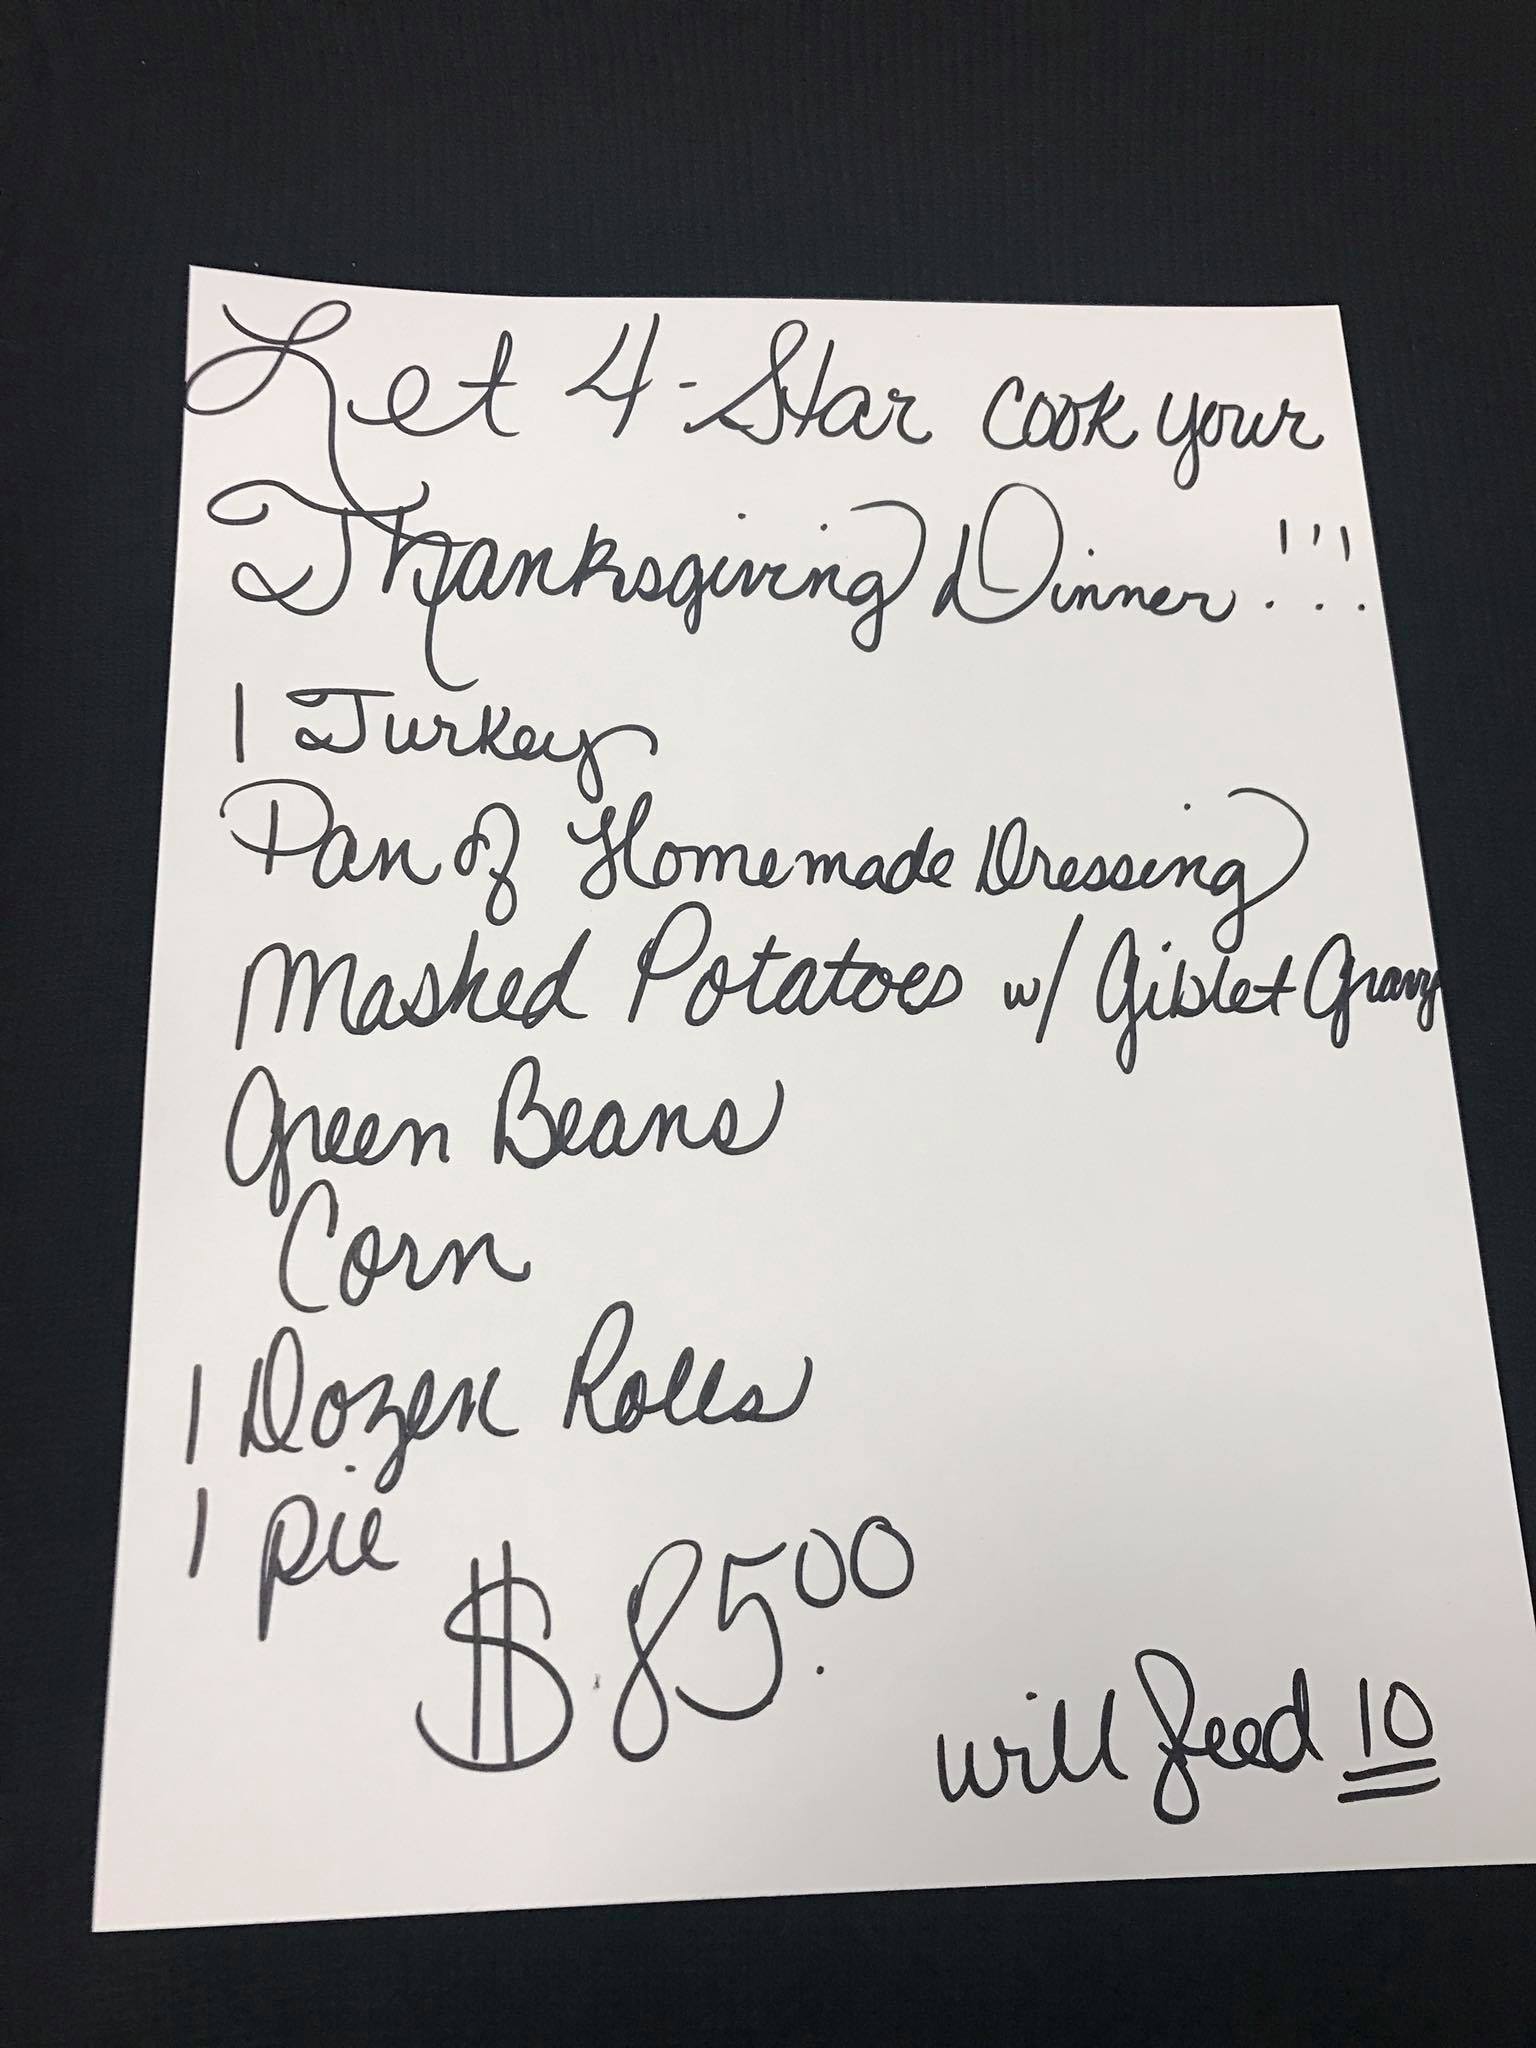 Let 4-Star cook your
Thanksgiving Dinner!!!
1 Turkey
Pan of Homemade Dressing
Mashed Potatoes w/ Giblet Gravy
Green Beans
Corn
1 Dozen Rolls
1 pie
$85.00
will feed 10